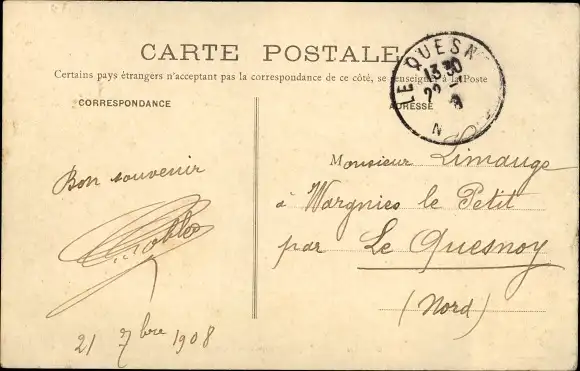 CARTE POSTALE
Certains pays étrangers n'acceptant pas la correspondance de ce côté, se renseigner à la Poste
CORRESPONDANCE
Bon souvenir
21 7bre 1908
ADRESSE
Monsieur Limauge
à Wargnies le Petit
par Le Quesnoy
(Nord)
LE QUESN
13 30
22